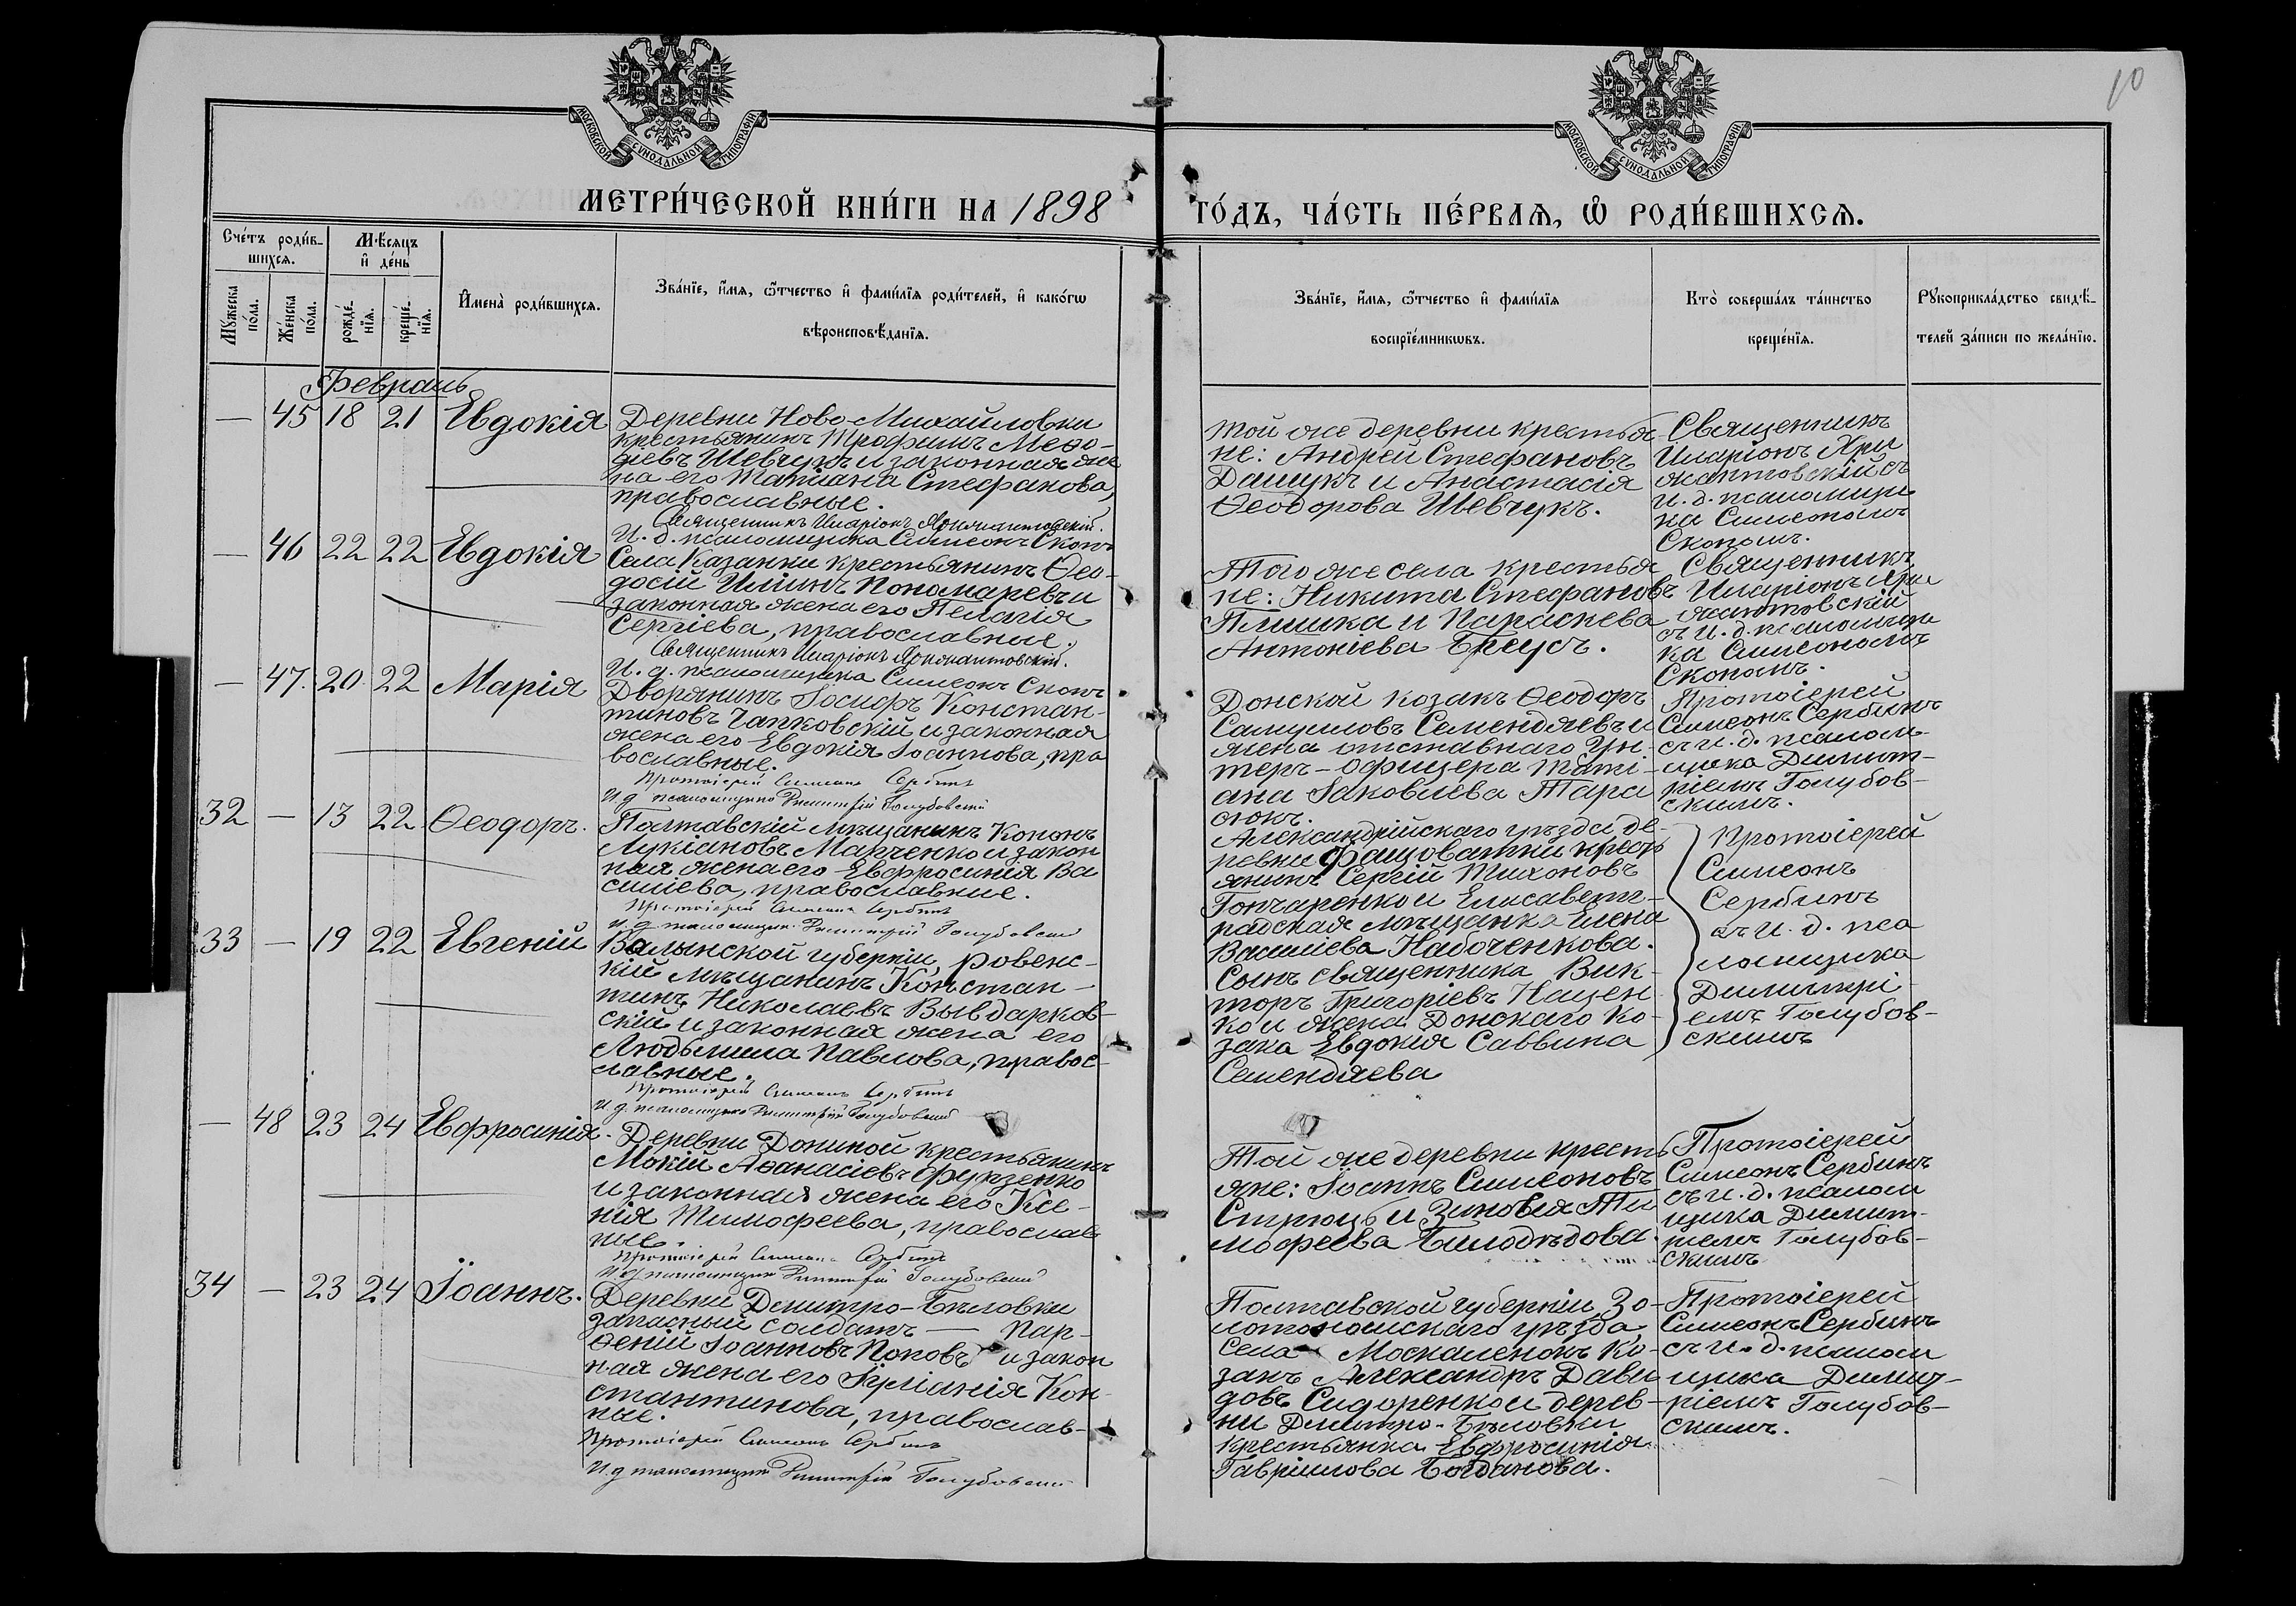 10
МОСКОВСКОЙ СѴНОДАЛЬНОЙ ТИПОГРАФІИ
МОСКОВСКОЙ СѴНОДАЛЬНОЙ ТИПОГРАФІИ
МЕТРИ́ЧЕСКОЙ КНИ́ГИ НА 1898
ГО́ДЪ, ЧА́СТЬ ПЕ́РВАѦ, Ѡ҆ РОДИ́ВШИХСѦ.
Сче́тъ роди́в-
шихсѧ.
Мѣ́сяцъ
и҆ де́нь
Мꙋ́жеска
по́ла.
Же́нска
по́ла.
рожде́-
нїѧ.
креще́-
нїѧ.
И҆мена̀ роди́вшихсѧ.
Зва́нїе, и҆́мѧ, ѻ҆́тчество и҆ фами́лїѧ роди́телей, и҆ како́гѡ
вѣроисповѣ́данїѧ.
Зва́нїе, и҆́мѧ, ѻ҆́тчество и҆ фами́лїѧ
воспрїе́мникѡвъ.
Кто̀ соверша́лъ та́инство
креще́нїѧ.
Рꙋкоприкла́дство свидѣ́-
телей за́писи по жела́нїю.
Февраль
— 45 18 21 Евдокія
Деревни Ново-Михайловки
крестьянинъ Трофимъ Мефо-
діевъ Шевчукъ и законная же
на его Татіана Стефанова,
православные.
Священникъ Иларіонъ
И. д. псаломщика Симеонъ Скопъ
Той же деревни крестья
не: Андрей Стефановъ
Дащукъ и Анастасія
Ѳеодорова Шевчукъ.
Священникъ
Иларіонъ Хри
жантовскій съ
и. д. псаломщи
ка Симеономъ
Скопомъ.
— 46 22 22 Евдокія
Села Казанки крестьянинъ Ѳео-
досій Иліинъ Пономаревъ и
законная жена его Пелагія
Сергіева, православные.
Священникъ Иларіонъ
И. д. псаломщика Симеонъ Скопъ
Того же села крестья
не: Никита Стефановъ
Плишка и Параскева
Антоніева Бѣеусъ.
Священникъ
Иларіонъ Хри
жантовскій
съ и. д. псаломщи
ка Симеономъ
Скопомъ.
— 47. 20 22 Марія
Дворянинъ Іосифъ Констан-
тиновъ Чапковскій и законная
жена его Евдокія Іоаннова, пра
вославные.
Протоіерей Симеонъ Сербинъ
И. д. псаломщика Димитрій Голубовскій
Донской козакъ Ѳеодоръ
Самуиловъ Семендяевъ и
жена отставнаго Ун-
теръ-офицера Тати-
ана Іаковлева Тара
Протоіерей
Симеонъ Сербинъ
съ и. д. псалом-
щика Димит-
ріемъ Голубов-
скимъ.
32 — 13 22 Ѳеодоръ.
Полтавскій мѣщанинъ Кононъ
Лукіановъ Марченко и закон
ная жена его Евфросинія Ва
силіева, православные.
Протоіерей Симеонъ Сербинъ
И. д. псаломщика Димитрій Голубовскій
Александрійскаго уѣзда де-
ревни Фащоватки кресть
янинъ Сергій Тихоновъ
Гончаренко и Елисавет-
радская мѣщанка Елена
Василіева Набоченкова.
Протоіерей
Симеонъ
Сербинъ
съ и. д. пса
ломщика
Димитрі-
емъ Голубов-
скимъ
33 — 19 22 Евгеній
Волынской губерніи, Ровенс-
кій мѣщанинъ Констан-
тинъ Николаевъ Вывдарков-
скій и законная жена его
Людьмила Павлова, правос-
лавные.
Протоіерей Симеонъ Сербинъ
И. д. псаломщика Димитрій Голубовскій
Сынъ священника Вик-
торъ Григоріевъ Нацен
ко и жена Донскаго Ко-
зака Евдокія Саввина
Семендяева
— 48 23 24 Евфросинія.
Деревни Дониной крестьянинъ
Мокій Аѳанасіевъ Фурзенко
и законная жена его Ксе-
нія Тимофеева, православ
ные.
Протоіерей Симеонъ Сербинъ
И. д. псаломщика Димитрій Голубовскій
Той же деревни кресть
яне: Іоаннъ Симеоновъ
Стрюцъ и Зиновія Ти
мофеева Билодѣдова.
Протоіерей
Симеонъ Сербинъ
съ и. д. псалом
щика Димит-
ріемъ Голубов-
скимъ
34 — 23 24 Іоаннъ.
Деревни Дмитро-Бѣловки
запасный солдатъ — Пар-
ѳеній Іоанновъ Поповъ и закон
ная жена его Іуліанія Кон-
стантинова, православ-
ные.
Протоіерей Симеонъ Сербинъ
И. д. псаломщика Димитрій Голубовскій
Полтавской губерніи, Зо-
лотоношскаго уѣзда,
села Москаленокъ ко-
закъ Александръ Дави
довъ Сидоренко и дерев-
ни Дмитро-Бѣловки
крестьянка Евфросинія
Гавріилова Богданова.
Протоіерей
Симеонъ Сербинъ
съ и. д. псалом
щика Димит-
ріемъ Голубов-
скимъ.